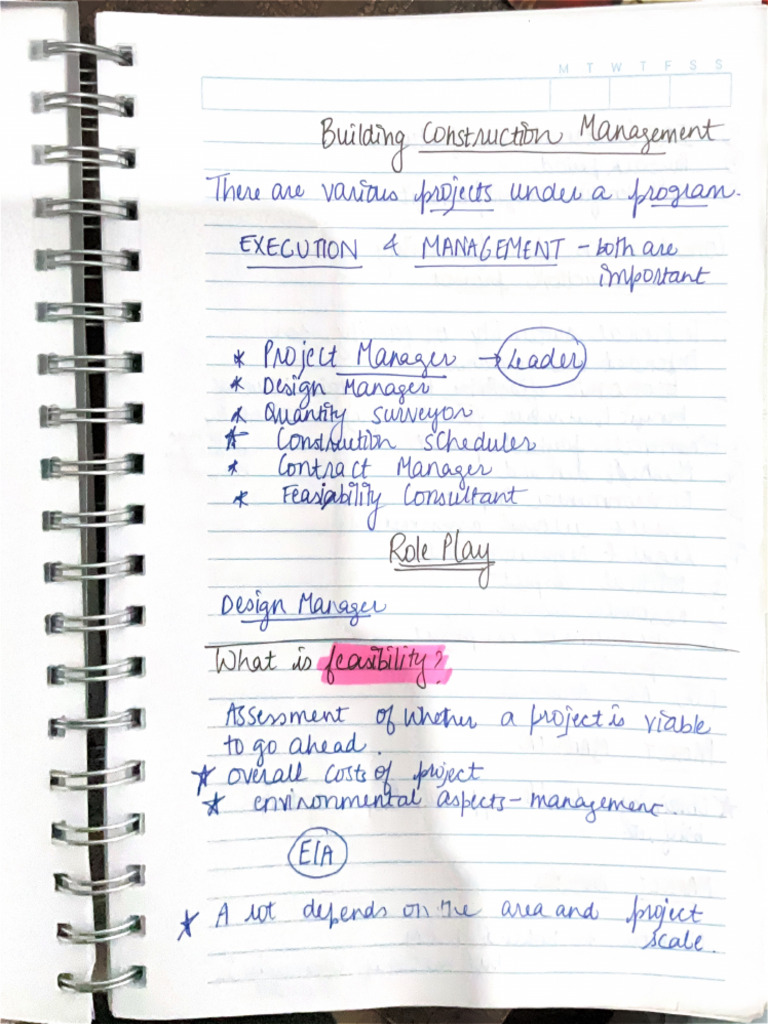 M T W T F S S
Building Construction Management
There are various projects under a program.
EXECUTION & MANAGEMENT - both are
important
* Project Manager → Leader
* Design Manager
* Quantity surveyor
* Construction scheduler
* Contract Manager
* Feasibility Consultant
Role Play
Design Manager
What is feasibility?
Assessment of whether a project is viable
to go ahead.
* overall costs of project
* environmental aspects - management.
EIA
* A lot depends on the area and project
scale.